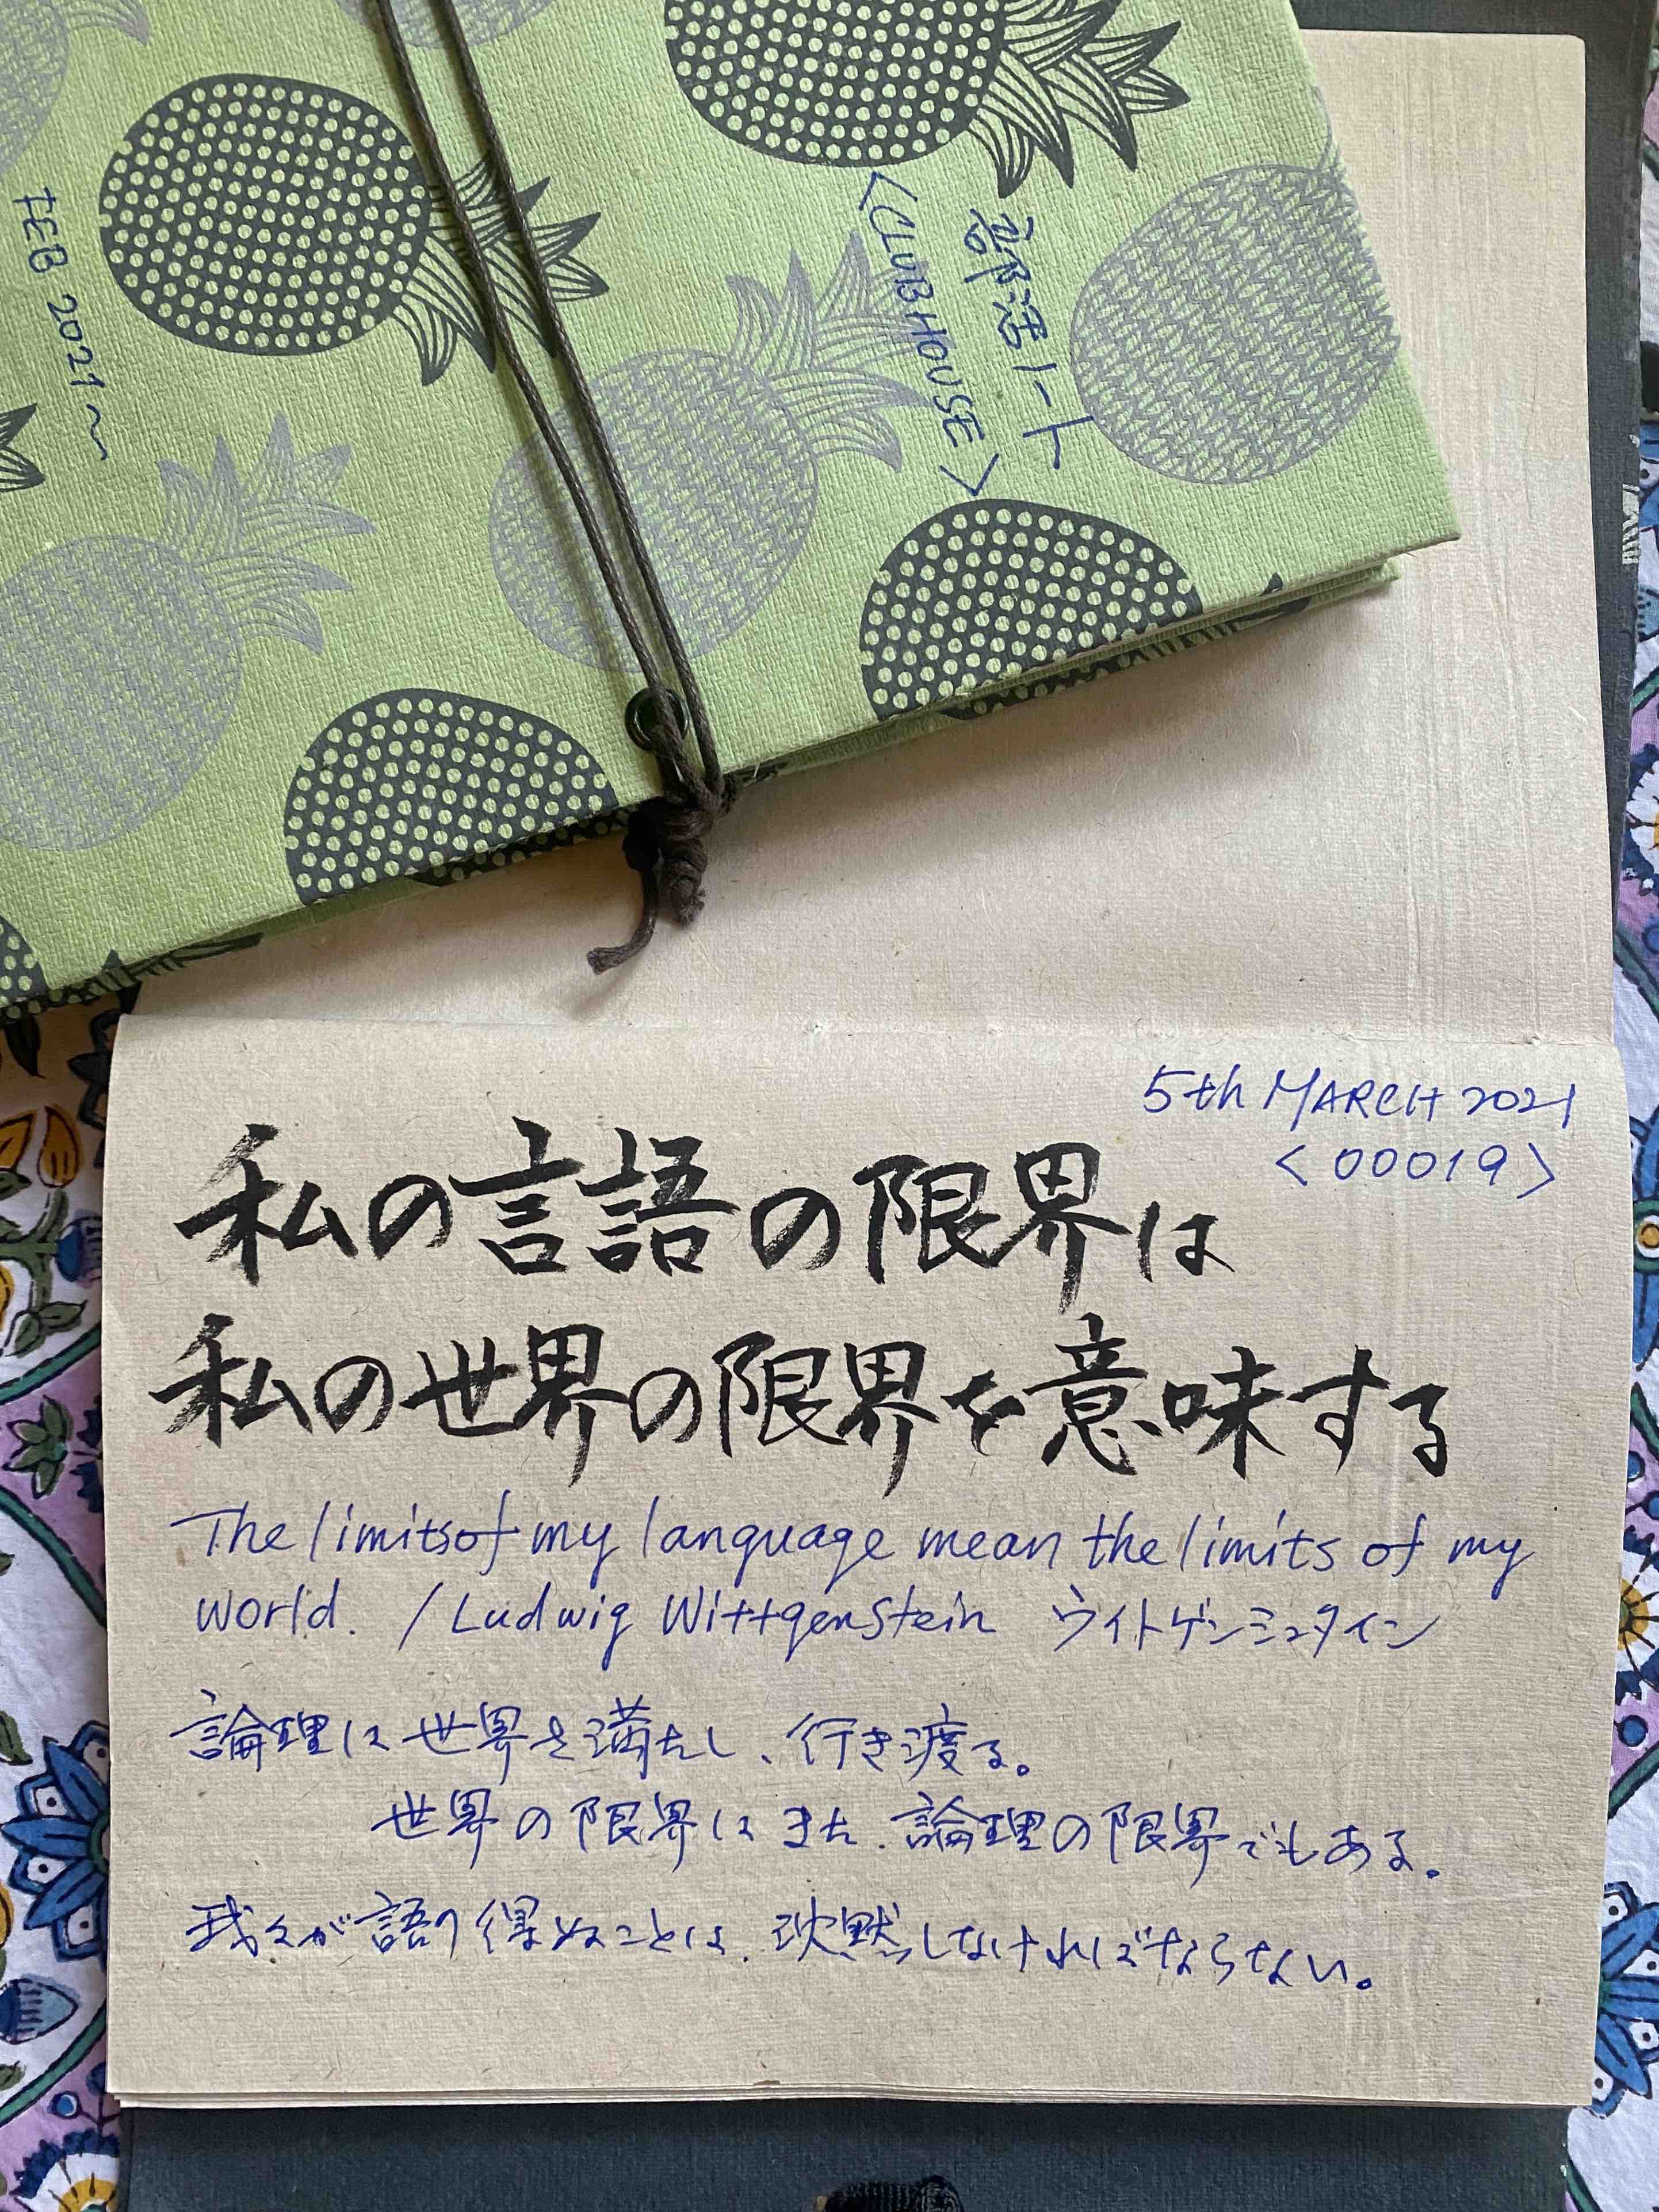 FEB 2021～
部活ノート
<CLUBHOUSE>
5th MARCH 2021
<00019>
私の言語の限界は
私の世界の限界を意味する
The limits of my language mean the limits of my
world. / Ludwig Wittgenstein ウィトゲンシュタイン
論理は世界を満たし、行き渡る。
世界の限界はまた、論理の限界でもある。
我々が語り得ぬことは、沈黙しなければならない。